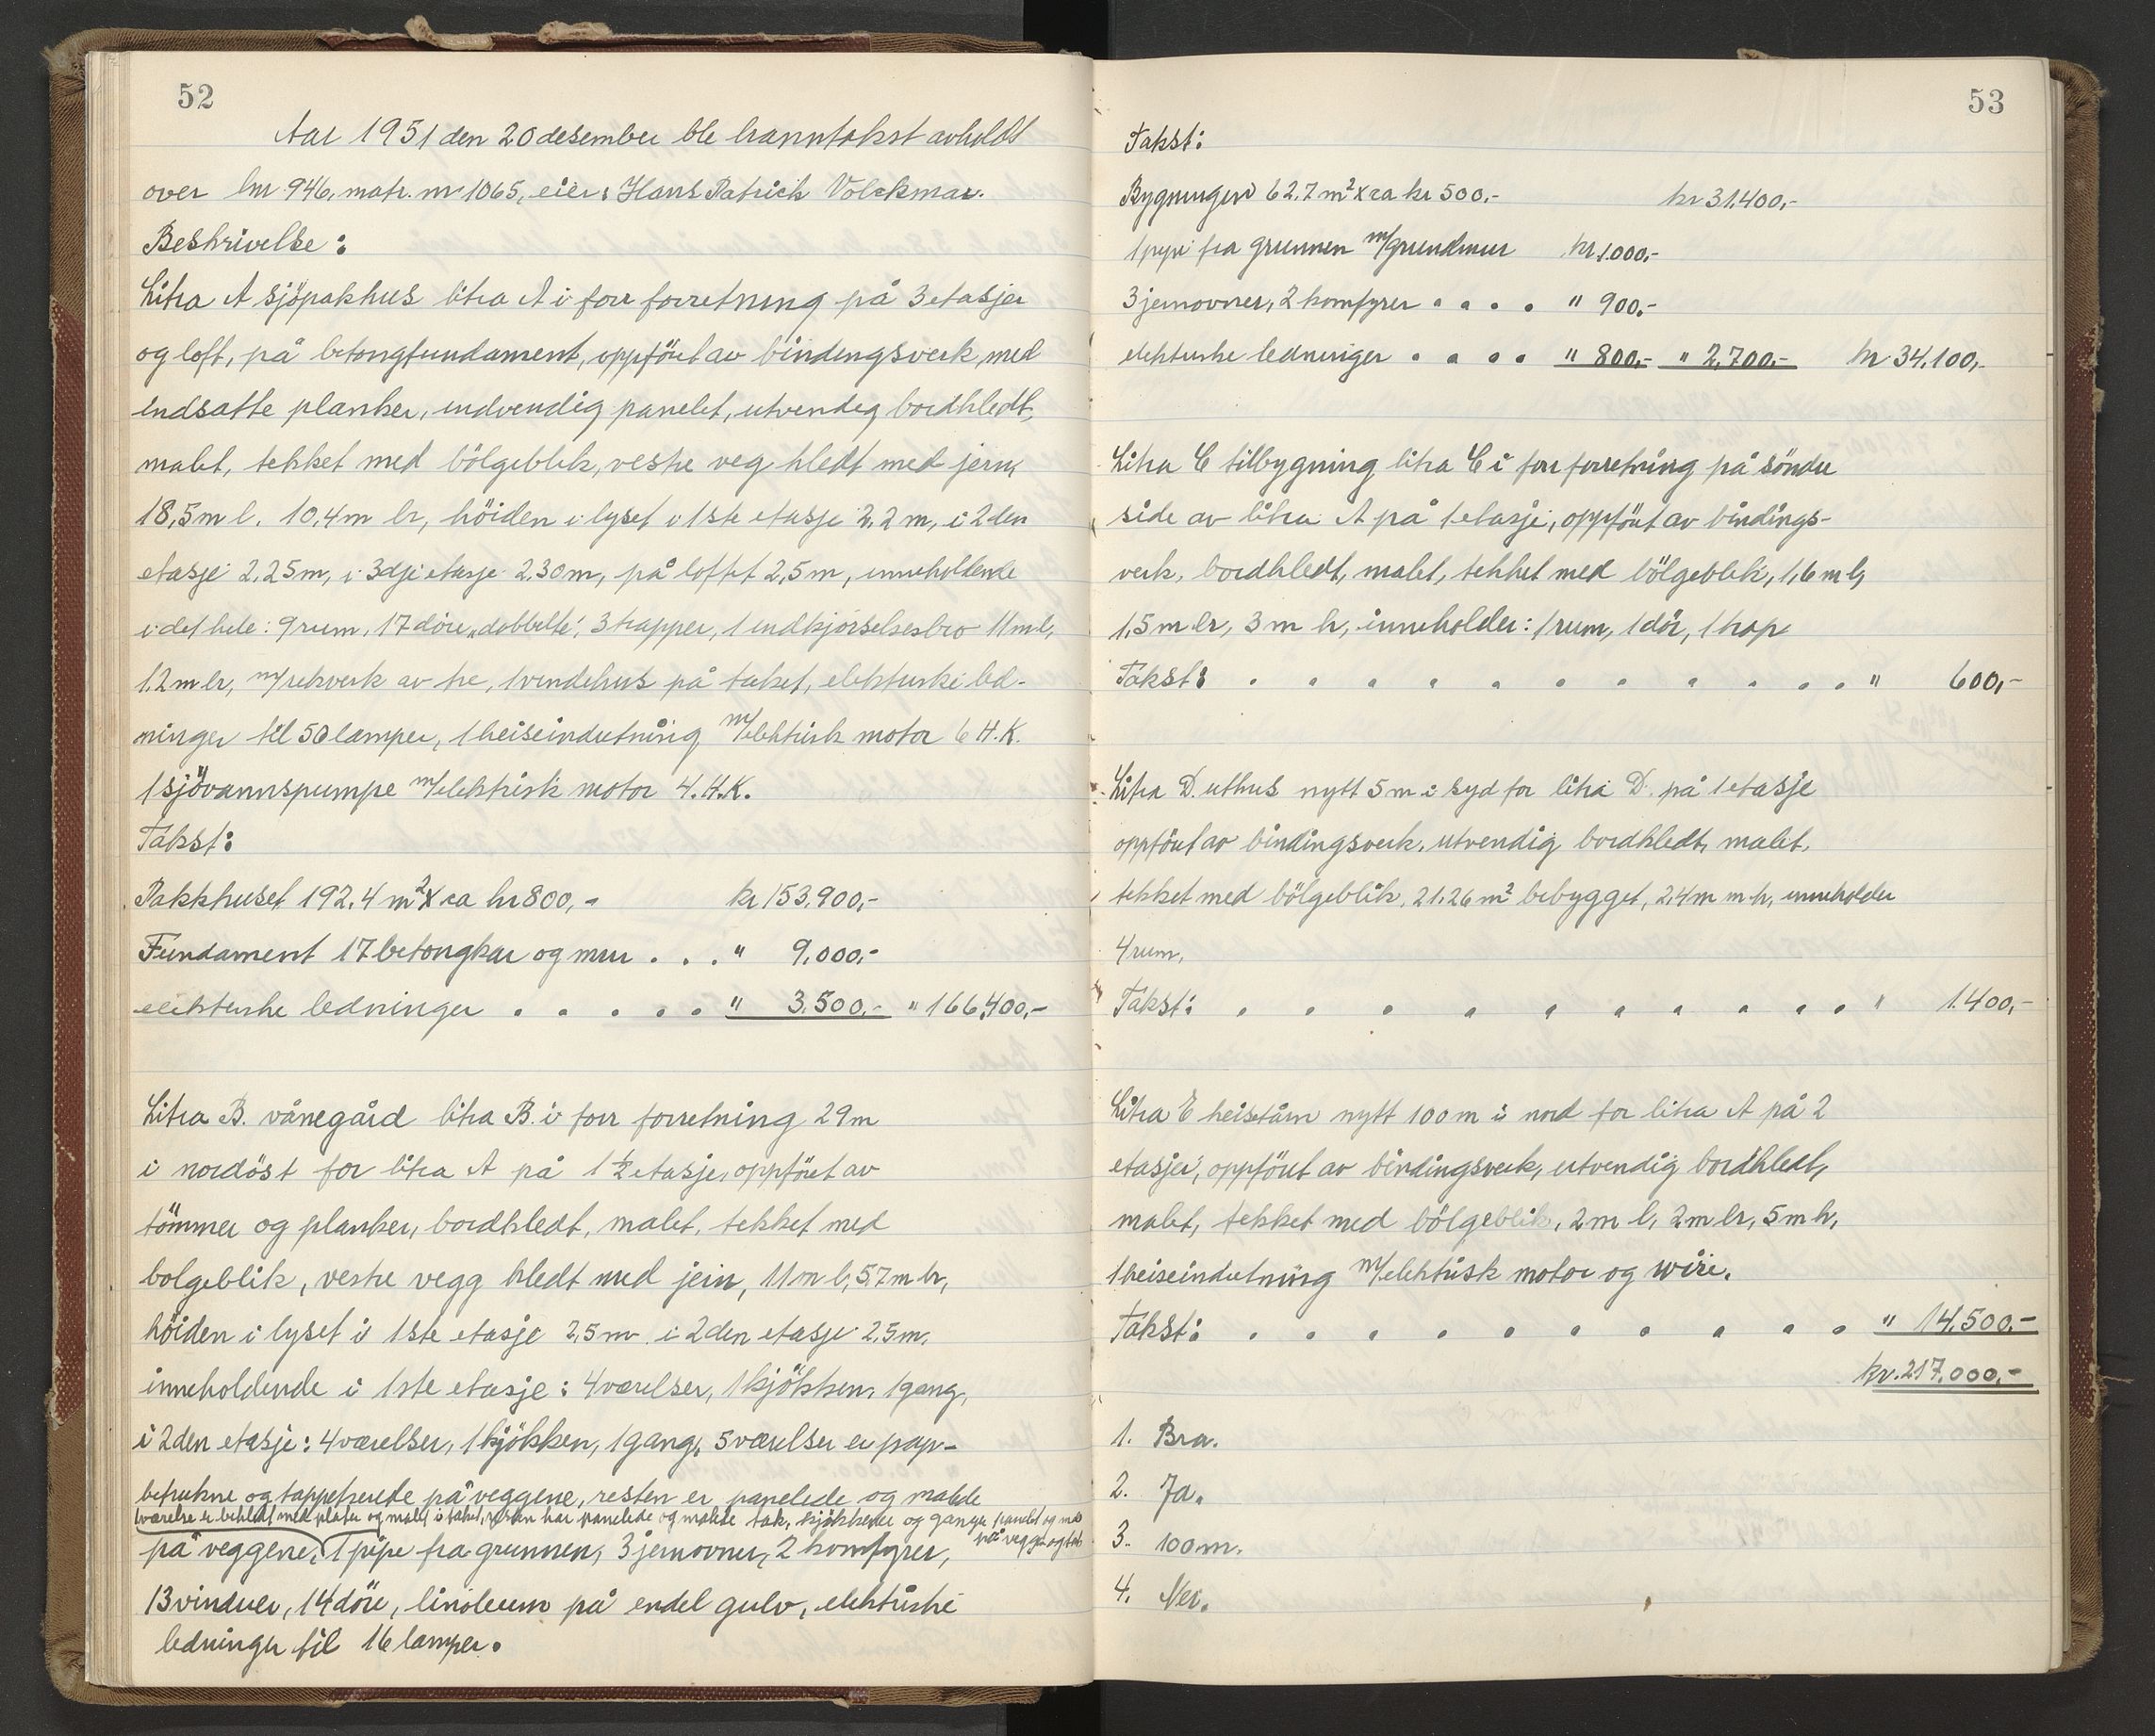 52
Aar 1951 den 20 desember ble branntakst avholdt
over bnr 946, matr. nr 1065, eier: Hans Patrick Volckmar.
Beskrivelse:
Litra A sjöpakhus litra A i forr forretning på 3 etasjer
og loft, på betongfundament, oppfört av bindingsverk, med
indsatte planker, indvendig panelet, utvendig bordkledt,
malet, tekket med bölgeblik, vestre veg kledt med jern,
18,5 m l. 10,4 m br, höiden i lyset i 1ste etasje 2,2 m, i 2den
etasje 2,25 m, i 3dje etasje 2,30 m, på loftet 2,5 m, inneholdende
i det hele: 9 rum, 17 döre „dobbelte", 3 trapper, 1 indkjörselsesbro 11 m l,
1,2 m br, m/rekverk av tre, 1 vindehus på taket, elektriske led-
ninger til 50 lamper, 1 heiseindretning m/elektrisk motor 6 H.K.
1 sjövannspumpe m/elektrisk motor 4. H.K.
Takst:
Pakkhuset 192,4 m² x ca kr 800,- kr 153.900,-
Fundament 17 betongkar og mur . . . " 9.000,-
elektriske ledninger . . . . . " 3.500,- " 166.400,-
Litra B. vånegård litra B. i forr forretning 29 m
i nordöst for litra A på 1 ½ etasje, oppfört av
tömmer og planker, bordkledt, malet, tekket med
bolgeblik, vestre vegg kledt med jern, 11 m l, 5,7 m br,
höiden i lyset i 1ste etasje 2,5 m i 2den etasje 2,5 m,
inneholdende i 1ste etasje: 4 værelser, 1 kjökken, 1 gang,
i 2den etasje: 4 værelser, 1 kjökken, 1 gang, 5 værelser er pap-
betrukne og tappetserede på veggene, resten er panelede og malede
1 værelse er bekledt med plater og malt i taket, resten har panelede og malede tak, kjökkener og ganger panelt og malt
på vegger og tak
på veggene, 1 pipe fra grunnen, 3 jernovner, 2 komfyrer,
13 vinduer, 14 döre, linoleum på endel gulv, elektriske
ledninger til 16 lamper.
53
Takst:
Bygningen 62.7 m² x ca kr 500,- kr 31.400,-
1 pipe fra grunnen m/grundmur kr 1.000,-
3 jernovner, 2 komfyrer . . . . " 900,-
elektriske ledninger . . . . " 800,- " 2.700,- kr 34.100,-
Litra C tilbygning litra C i forr forretning på söndre
side av litra A på 1 etasje, oppfört av bindings-
verk, bordkledt, malet, tekket med bölgeblik, 1,6 m l,
1,5 m br, 3 m h, inneholder: 1 rum, 1 dör, 1 trap
Takst: . . . . . . . . . . . . " 600,-
Litra D. uthus nytt 5 m i syd for litra D. på 1 etasje
oppfört av bindingsverk, utvendig bordkledt, malet,
tekket med bölgeblik, 21,26 m² bebygget, 2,4 m m.h, inneholder
4 rum,
Takst: . . . . . . . . . . . " 1.400,-
Litra E heisetårn nytt 100 m i nord for litra A på 2
etasjer, oppfört av bindingsverk, utvendig bordkledt,
malet, tekket med bölgeblik, 2 m l, 2 m br, 5 m h,
1 heiseindretning m/elektrisk motor og wire.
Takst: . . . . . . . . . . . " 14.500,-
kr. 217.000,-
1. Bra.
2. Ja.
3. 100 m.
4. Nei.